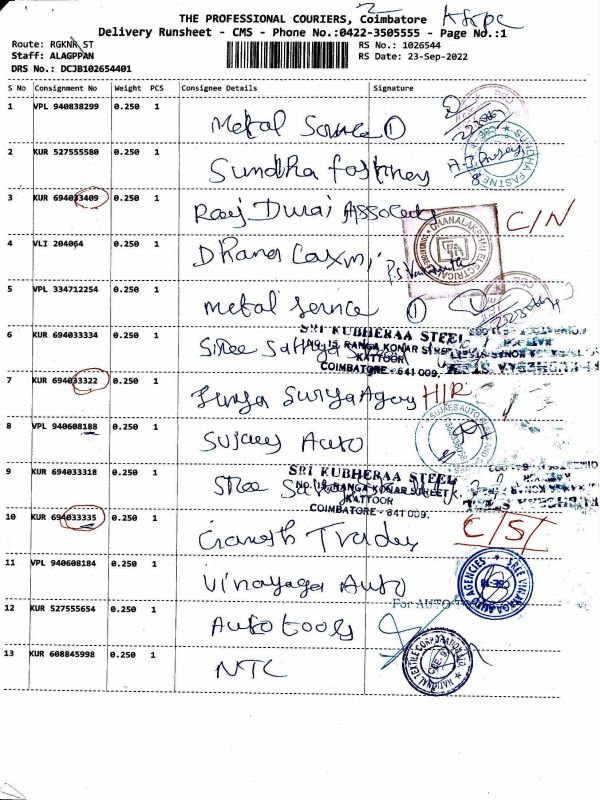 THE PROFESSIONAL COURIERS, Coimbatore
Delivery Runsheet - CMS - Phone No.:0422-3505555 - Page No.:1
Route: RGKNR ST
RS No.: 1026544
Staff: ALAGPPAN
RS Date: 23-Sep-2022
DRS No.: DCJB102654401
S No Consignment No Weight PCS Consignee Details Signature
1 VPL 940838299 0.250 1 Metal Service ①
2 KUR 527555580 0.250 1 Sundha Fastners
SUNDHA FASTNE
3 KUR 694033409 0.250 1 Raaj Durai Associates C/N
4 VLI 204064 0.250 1 Dhana Laxmi
DHANALAKSHMI ELECTRICAL
5 VPL 334712254 0.250 1 Metal Service ①
6 KUR 694033334 0.250 1 Sree
SRI KUBHERAA STEEL
NO.19, RANGA KONAR STREET
KATTOOR
COIMBATORE - 641 009.
7 KUR 694033322 0.250 1 Surya Agency
8 VPL 940608188 0.250 1 Sujaes Auto
SUJAES AUTO
9 KUR 694033318 0.250 1 Sree
SRI KUBHERAA STEEL
NO.19, RANGA KONAR STREET
KATTOOR
COIMBATORE - 641 009.
10 KUR 694033335 0.250 1 Ganesh Trades C/S
11 VPL 940608184 0.250 1 Vinayaga Auto
SREE VINAYAGA AUTO AGENCIES
CBE-18
12 KUR 527555654 0.250 1 Auto tools
For AUTO
13 KUR 608845998 0.250 1 NTC
NATIONAL TEXTILE CORPORATION